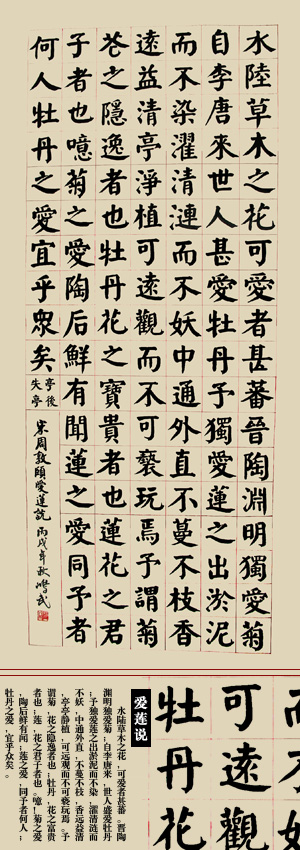 水陸草木之花可愛者甚蕃晉陶淵明獨愛菊
自李唐來世人甚愛牡丹予獨愛蓮之出淤泥
而不染濯清漣而不妖中通外直不蔓不枝香
遠益清亭淨植可遠觀而不可褻玩焉予謂菊
花之隱逸者也牡丹花之寶貴者也蓮花之君
子者也噫菊之愛陶后鮮有聞蓮之愛同予者
何人牡丹之愛宜乎眾矣
亭後
失亭
宋周敦頤愛蓮說 丙戌年秋
可遠觀
牡丹花
爱莲说
水陆草木之花，可爱者甚蕃。晋陶
渊明独爱菊；自李唐来，世人盛爱牡丹
；予独爱莲之出淤泥而不染，濯清涟而
不妖，中通外直，不蔓不枝，香远益清
，亭亭静植，可远观而不可亵玩焉。予
谓菊，花之隐逸者也；牡丹，花之富贵
者也；莲，花之君子者也。噫！菊之爱
，陶后鲜有闻；莲之爱，同予者何人；
牡丹之爱，宜乎众矣。